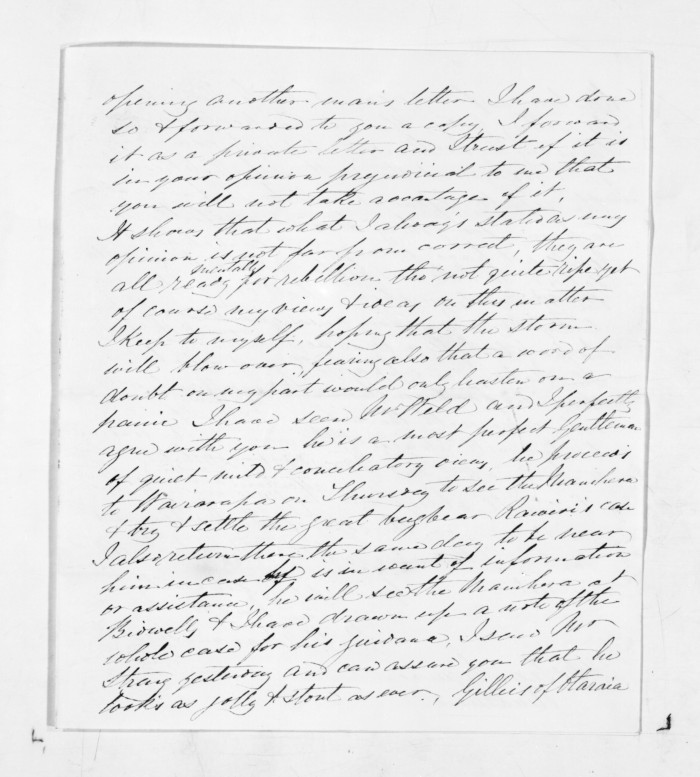 opening another mans letter I have done
so & forwarded to you a copy. I forward
it as a private letter and I trust if it is
in your opinion prejudicial to me that
you will not take advantage of it.
It shows that what I always stated as my
opinion is not far from correct, they are
mentally
all ready for rebellion tho' not quite ripe yet
of course my views & ideas on this matter
I keep to myself, hoping that the storm
will blow over, fearing also that a word of
doubt on my part would only hasten on a
panic I have seen Mr Weld and I perfectly
agree with you he is a most perfect Gentleman
of quiet mild & conciliatory views, he proceeds
to Wairarapa on Thursday to see the Manihera
& try & settle the great bugbear case
I also return there the same day to be near
him in case he is in want of information
or assistance, he will see the Manihera at
Bidwells, & I have drawn up a note of the
whole case for his guidance, I seen Mr
Strang yesterday and can assure you that he
looks as jolly & stout as ever. Gillies of Otaraia